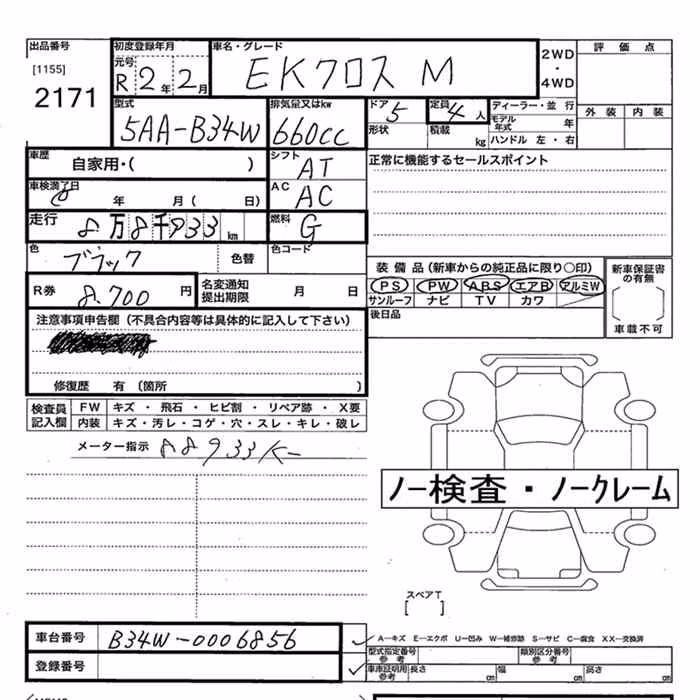 出品番号 初度登録年月 車名・グレード 2WD 評価点
[1155] 元号 EKクロス M ・
2171 R 2年 2月 4WD
型式 排気量又はkw ドア 定員 ディーラー・並行 外装 内装
5AA-B34W 660cc 5 4人 モデル年式 年
形状 積載 kg ハンドル 左・右
車歴 シフト 正常に機能するセールスポイント
自家用・( ) AT
車検満了日 AC
年 月( 日) AC
走行 8万8千933km 燃料 G
色 ブラック 色替 色コード 装備品(新車からの純正品に限り○印) 新車保証書の有無
R券 8,700円 名変通知提出期限 月 日 PS PW ABS エアB アルミW
サンルーフ ナビ TV カワ
注意事項申告欄(不具合内容等は具体的に記入して下さい) 後日品 車載不可
修復歴 有(箇所 )
検査員記入欄 FW キズ・飛石・ヒビ割・リペア跡・X要
内装 キズ・汚レ・コゲ・穴・スレ・キレ・破レ
メーター指示 88933K
ノー検査・ノークレーム
スペアT
[ ]
車台番号 B34W-0006856 A―キズ E―エクボ U―凹み W―補修跡 S―サビ C―腐食 XX―交換済
型式指定番号 参考 類別区分番号 参考
登録番号 車庫証明用参考 長さ cm 幅 cm 高さ cm